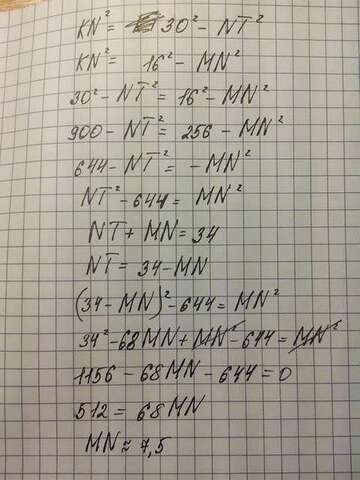 KN² = 30² - NT²
KN² = 16² - MN²
30² - NT² = 16² - MN²
900 - NT² = 256 - MN²
644 - NT² = - MN²
NT² - 644 = MN²
NT + MN = 34
NT = 34 - MN
(34 - MN)² - 644 = MN²
34² - 68MN + MN² - 644 = MN²
1156 - 68MN - 644 = 0
512 = 68MN
MN ≈ 7,5